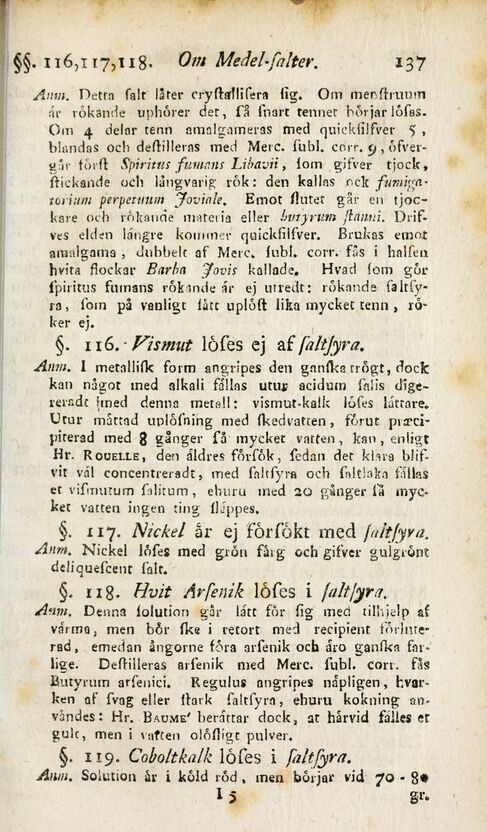 §§. 116,117,118. Om Medel-ſalter. 137
Anm. Detta ſalt låter cryſtalliſera ſig. Om menſtruum
år rökande uphörer det, ſå ſnart tennet börjar löſas.
Om 4 delar tenn amalgameras med quickſilfver 5,
blandas och deſtilleras med Merc. ſubl. corr. 9, öfver-
går förſt Spiritus fumans Libavii, ſom gifver tjock,
ſtickande och långvarig rök: den kallas ock fumiga-
torium perpetuum Joviale. Emot ſlutet går en tjoc-
kare och rökande materia eller butyrum ſtanni. Drif-
ves elden långre kommer quickſilfver. Brukas emot
amalgama, dubbelt af Merc. ſubl. corr. fås i halſen
hvita flockar Barba Jovis kallade. Hvad ſom gör
ſpiritus fumans rökande år ej utredt: rökande ſaltſy-
ra, ſom på vanligt ſått uplöſt lika mycket tenn, rö-
ker ej.
§. 116. Vismut löſes ej af ſaltſyra.
Anm. I metalliſk form angripes den ganſka trögt, dock
kan något med alkali fållas utur acidum ſalis dige-
reradt med denna metall: vismut-kalk löſes låttare.
Utur måttad uplöſning med ſkedvatten, förut præci-
piterad med 8 gånger ſå mycket vatten, kan, enligt
Hr. ROUELLE, den åldres förſök, ſedan det klara blif-
vit vål concentreradt, med ſaltſyra och ſaltlaka fållas
et viſmutum ſalitum, ehuru med 20 gånger ſå myc-
ket vatten ingen ting ſlåppes.
§. 117. Nickel år ej förſökt med ſaltſyra.
Anm. Nickel löſes med grön fårg och gifver gulgrönt
deliqueſcent ſalt.
§. 118. Hvit Arſenik löſes i ſaltſyra.
Anm. Denna ſolution går lått för ſig med tilhjelp af
vårma, men bör ſke i retort med recipient förlute-
rad, emedan ångorne föra arſenik och åro ganſka far-
lige. Deſtilleras arſenik med Merc. ſubl. corr. fås
Butyrum arſenici. Regulus angripes nåpligen, hvar-
ken af ſvag eller ſtark ſaltſyra, ehuru kokning an-
våndes: Hr. BAUME' beråttar dock, at hårvid fålles et
gult, men i vatten olösligt pulver.
§. 119. Coboltkalk löſes i ſaltſyra.
Anm. Solution år i köld röd, men börjar vid 70 - 80
I 5 gr.